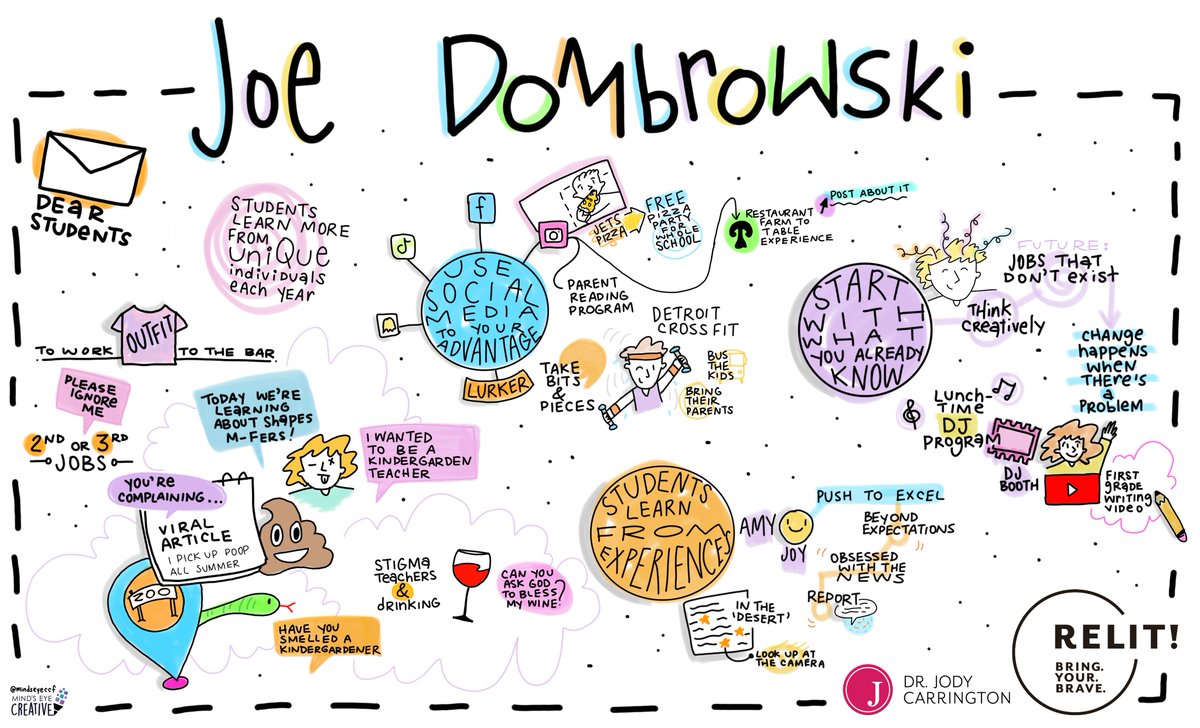 Joe Dombrowski
DEAR
STUDENTS
STUDENTS
LEARN MORE
FROM
UNIQUE
individuals
each year
OUTFIT
TO WORK TO THE BAR
PLEASE
IGNORE
ME
2ND OR 3RD
JOBS
TODAY WE'RE
LEARNING
ABOUT SHAPES
M-FERS!
I WANTED
TO BE A
KINDERGARDEN
TEACHER
YOU'RE
COMPLAINING...
VIRAL
ARTICLE
I PICK UP POOP
ALL SUMMER
ZOO
HAVE YOU
SMELLED A
KINDERGARDENER
STIGMA
TEACHERS
&
DRINKING
CAN YOU
ASK GOD
TO BLESS
MY WINE?
USE
SOCIAL
MEDIA
TO YOUR
ADVANTAGE
LURKER
f
JETS
PIZZA
FREE
PIZZA
PARTY
FOR
WHOLE
SCHOOL
PARENT
READING
PROGRAM
RESTAURANT
FARM TO
TABLE
EXPERIENCE
POST ABOUT IT
TAKE
BITS
&
PIECES
DETROIT
CROSSFIT
BUS
THE
KIDS
BRING
THEIR
PARENTS
START
WITH
WHAT
YOU ALREADY
KNOW
FUTURE:
JOBS THAT
DON'T EXIST
THINK
CREATIVELY
CHANGE
HAPPENS
WHEN
THERE'S
a
PROBLEM
LUNCH-
TIME
DJ
PROGRAM
DJ
BOOTH
FIRST
GRADE
WRITING
VIDEO
STUDENTS
LEARN
FROM
EXPERIENCES
AMY
JOY
PUSH TO EXCEL
BEYOND
EXPECTATIONS
OBSESSED
WITH THE
NEWS
REPORT
IN THE
'DESERT'
LOOK UP AT
THE CAMERA
@mindseyeccf
MIND'S EYE
CREATIVE
J
DR. JODY
CARRINGTON
RELIT!
BRING.
YOUR.
BRAVE.